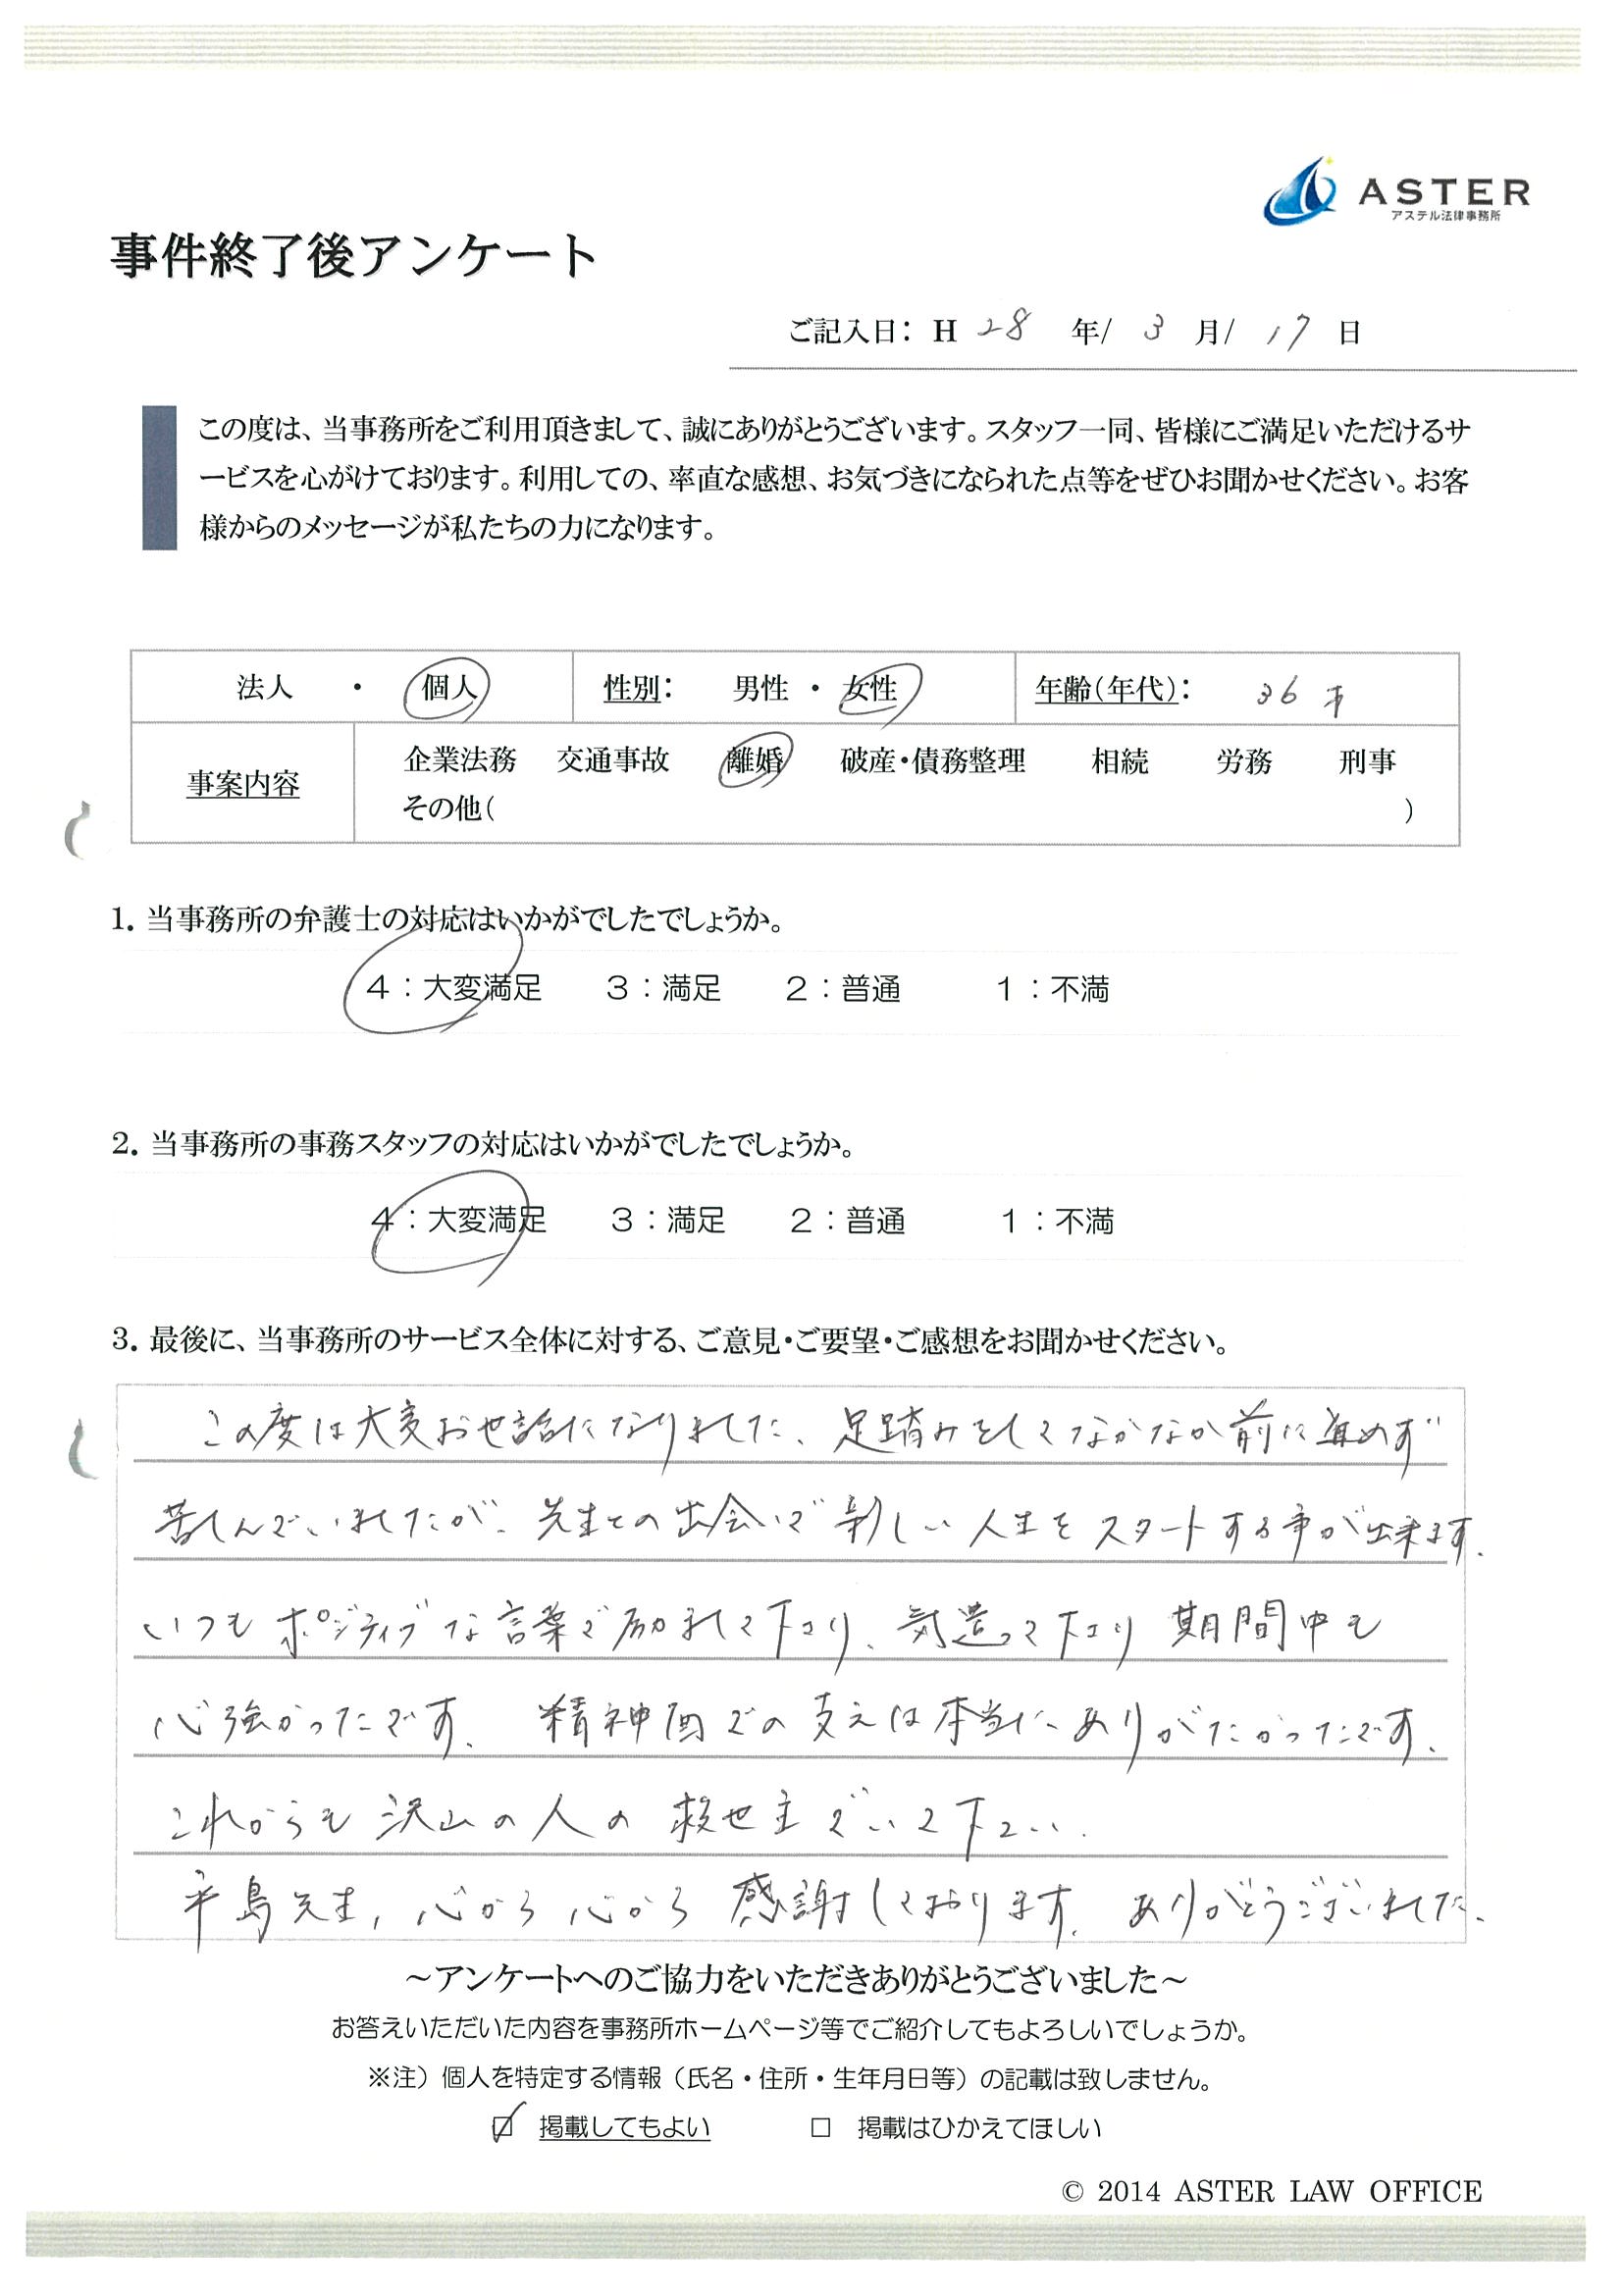 ASTER
アステル法律事務所
事件終了後アンケート
ご記入日： H 28 年/ 3 月/ 17 日
この度は、当事務所をご利用頂きまして、誠にありがとうございます。スタッフ一同、皆様にご満足いただけるサ
ービスを心がけております。利用しての、率直な感想、お気づきになられた点等をぜひお聞かせください。お客
様からのメッセージが私たちの力になります。
法人 ・ 個人 性別： 男性 ・ 女性 年齢（年代）： 36才
事案内容 企業法務 交通事故 離婚 破産・債務整理 相続 労務 刑事
その他（ ）
1. 当事務所の弁護士の対応はいかがでしたでしょうか。
4：大変満足 3：満足 2：普通 1：不満
2. 当事務所の事務スタッフの対応はいかがでしたでしょうか。
4：大変満足 3：満足 2：普通 1：不満
3. 最後に、当事務所のサービス全体に対する、ご意見・ご要望・ご感想をお聞かせください。
この度は大変お世話になりました、足踏みをしてなかなか前に進めず
苦しんでいましたが、先生との出会いで新しい人生をスタートする事が出来ます。
いつもポジティブな言葉で励まして下さり、気遣って下さり期間中も
心強かったです。精神面での支えは本当にありがたかったです。
これからも沢山の人の救世主でいて下さい。
平島先生、心から心から感謝しております。ありがとうございました。
～アンケートへのご協力をいただきありがとうございました～
お答えいただいた内容を事務所ホームページ等でご紹介してもよろしいでしょうか。
※注）個人を特定する情報（氏名・住所・生年月日等）の記載は致しません。
☑ 掲載してもよい □ 掲載はひかえてほしい
© 2014 ASTER LAW OFFICE